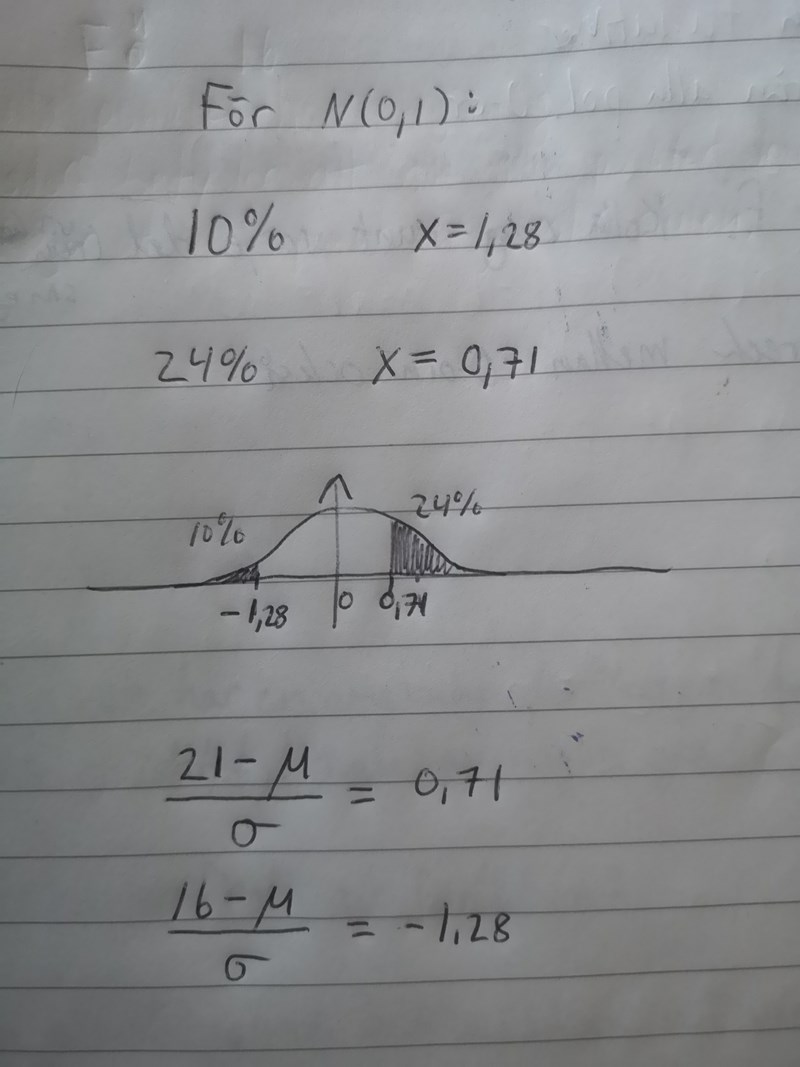 För N(0,1):
10% x=1,28
24% x= 0,71
10% 24%
-1,28 0 0,71
21-μ
σ
= 0,71
16-μ
σ
= -1,28